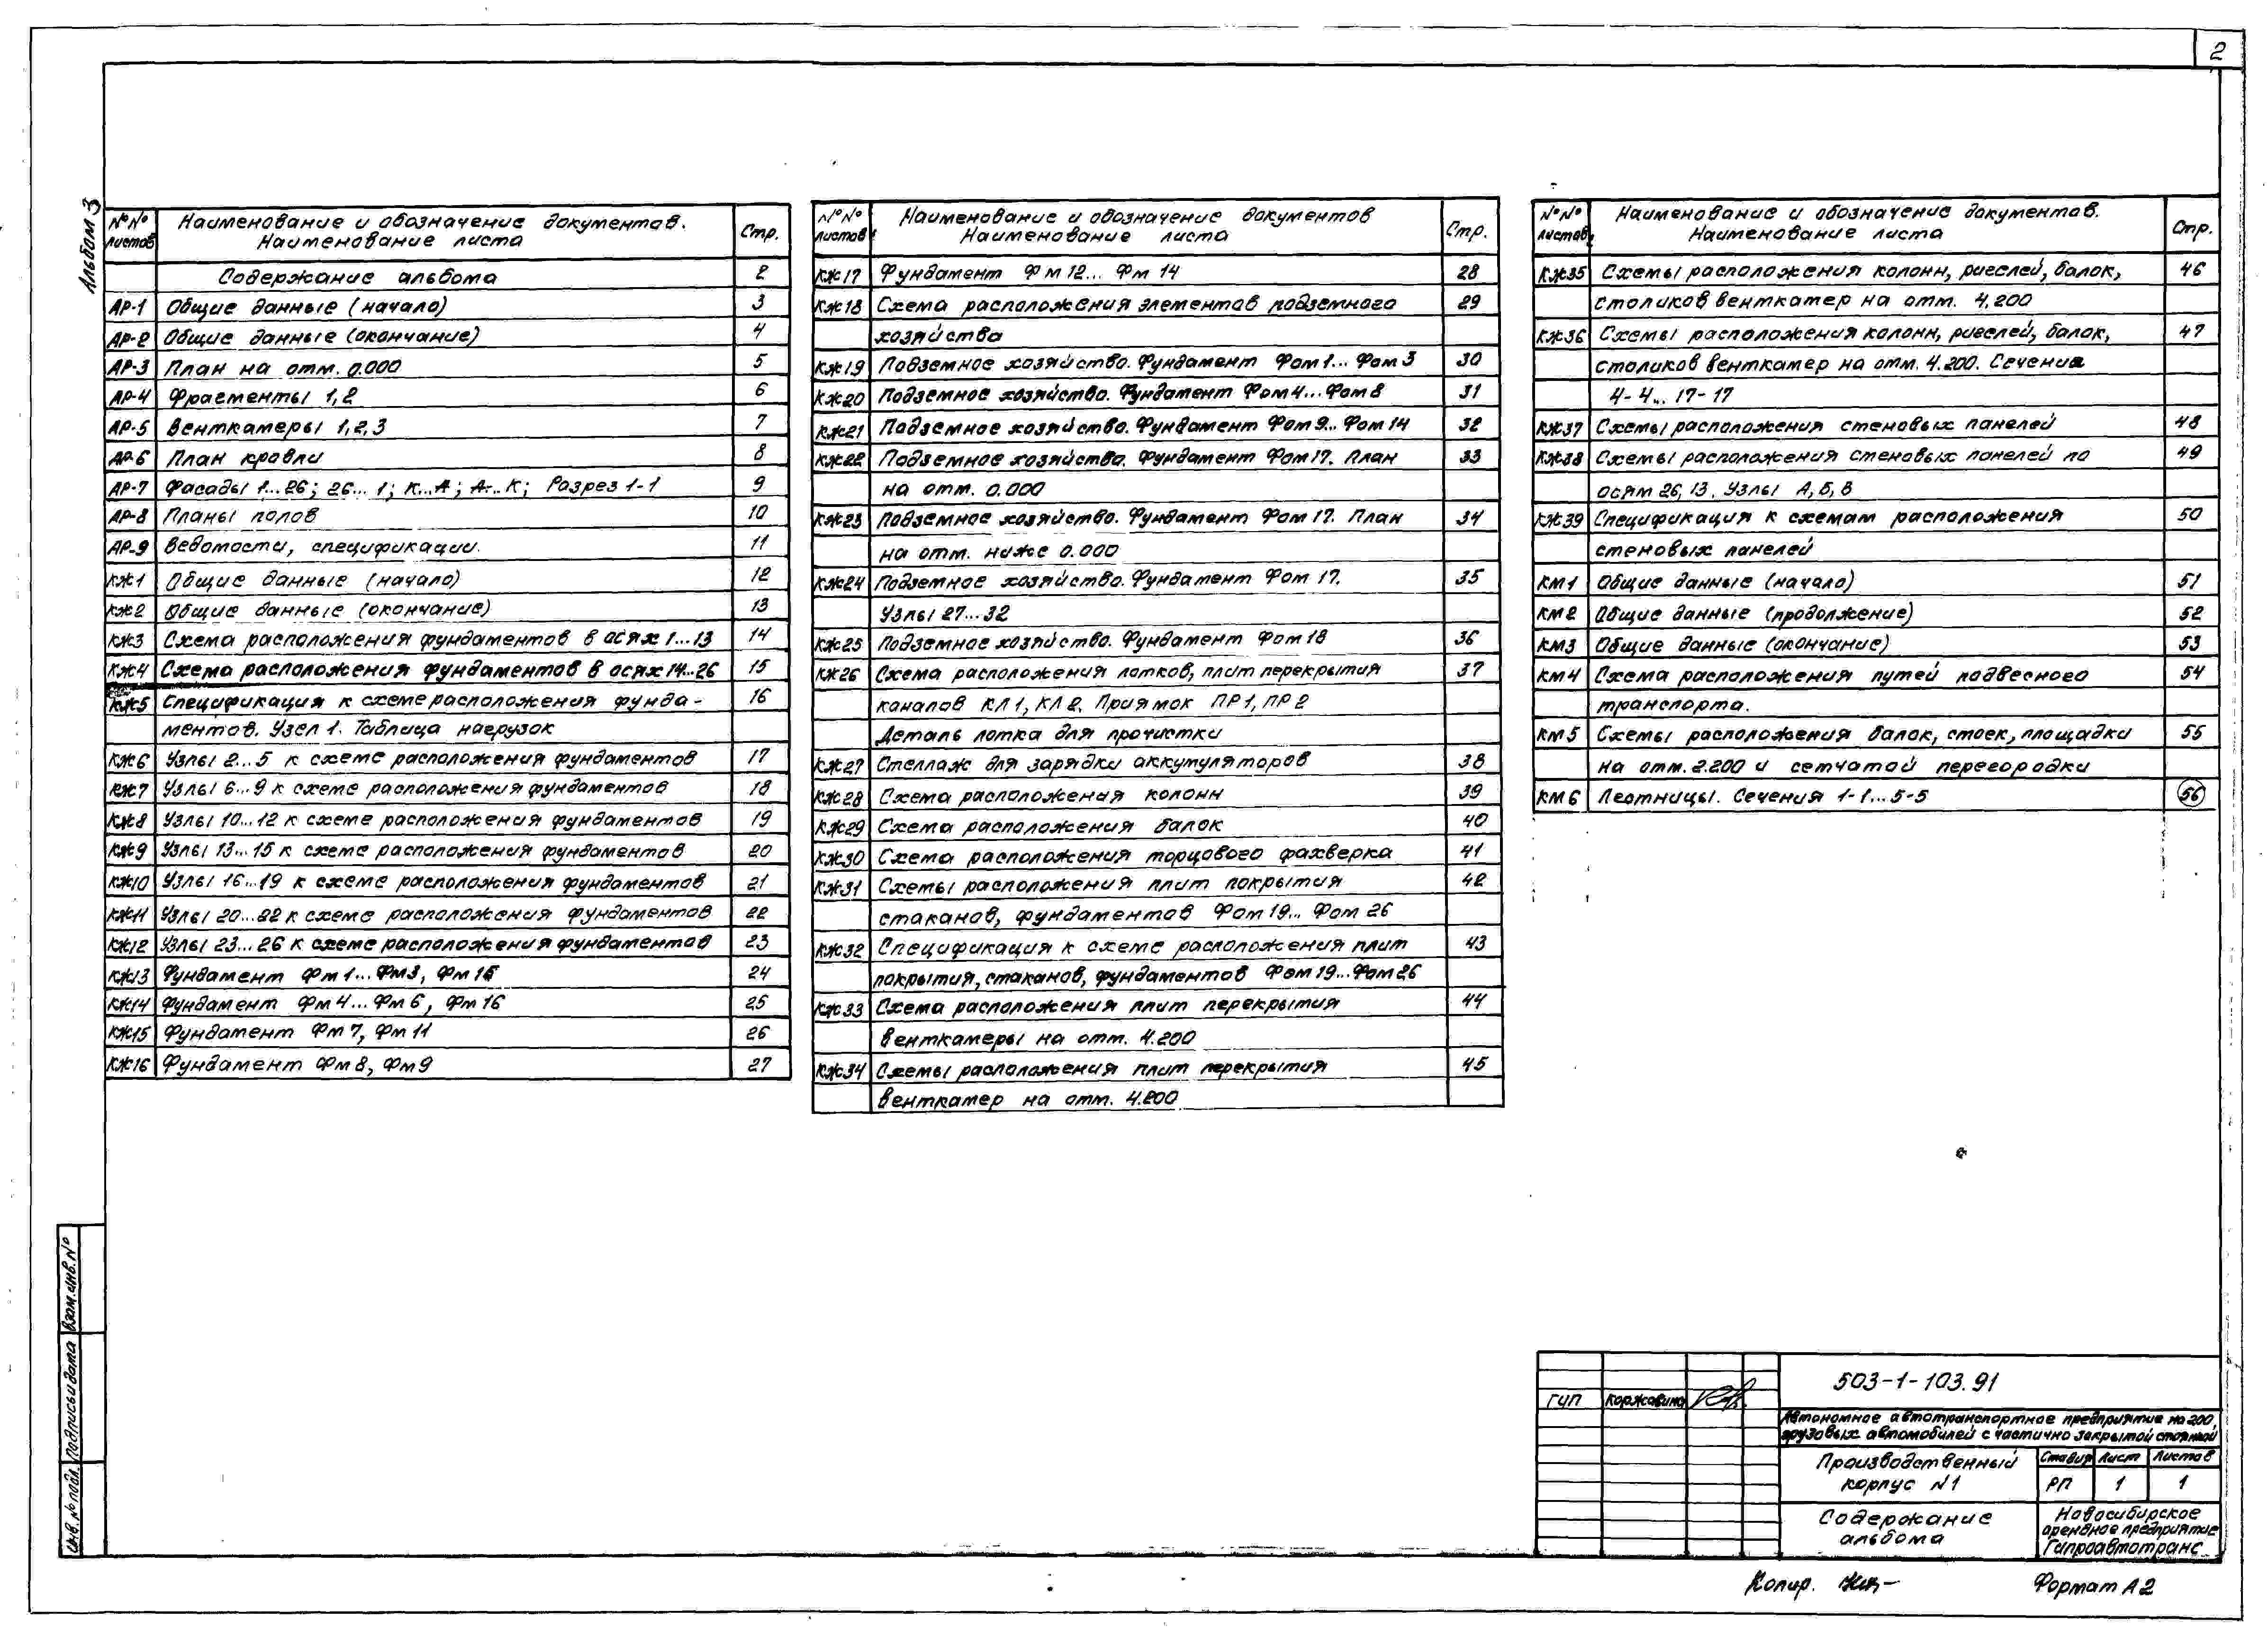 2
Альбом 3
№№ листов | Наименование и обозначение документов. Наименование листа | Стр.
Содержание альбома | 2
АР-1 | Общие данные (начало) | 3
АР-2 | Общие данные (окончание) | 4
АР-3 | План на отм. 0.000 | 5
АР-4 | Фрагменты 1,2 | 6
АР-5 | Венткамеры 1,2,3 | 7
АР-6 | План кровли | 8
АР-7 | Фасады 1...26; 26...1; К...А; А...К; Разрез 1-1 | 9
АР-8 | Планы полов | 10
АР-9 | Ведомости, спецификации. | 11
КЖ1 | Общие данные (начало) | 12
КЖ2 | Общие данные (окончание) | 13
КЖ3 | Схема расположения фундаментов в осях 1...13 | 14
КЖ4 | Схема расположения фундаментов в осях 14...26 | 15
КЖ5 | Спецификация к схеме расположения фунда- | 16
ментов. Узел 1. Таблица нагрузок
КЖ6 | Узлы 2...5 к схеме расположения фундаментов | 17
КЖ7 | Узлы 6...9 к схеме расположения фундаментов | 18
КЖ8 | Узлы 10...12 к схеме расположения фундаментов | 19
КЖ9 | Узлы 13...15 к схеме расположения фундаментов | 20
КЖ10 | Узлы 16...19 к схеме расположения фундаментов | 21
КЖ11 | Узлы 20...22 к схеме расположения фундаментов | 22
КЖ12 | Узлы 23...26 к схеме расположения фундаментов | 23
КЖ13 | Фундамент Фм1...Фм3, Фм15 | 24
КЖ14 | Фундамент Фм4...Фм6, Фм16 | 25
КЖ15 | Фундамент Фм7, Фм11 | 26
КЖ16 | Фундамент Фм8, Фм9 | 27
№№ листов | Наименование и обозначение документов Наименование листа | Стр.
КЖ17 | Фундамент Фм12... Фм14 | 28
КЖ18 | Схема расположения элементов подземного | 29
хозяйства
КЖ19 | Подземное хозяйство. Фундамент Фом1... Фом3 | 30
КЖ20 | Подземное хозяйство. Фундамент Фом4...Фом8 | 31
КЖ21 | Подземное хозяйство. Фундамент Фом9... Фом14 | 32
КЖ22 | Подземное хозяйство. Фундамент Фом17. План | 33
на отм. 0.000
КЖ23 | Подземное хозяйство. Фундамент Фом17. План | 34
на отм. ниже 0.000
КЖ24 | Подземное хозяйство. Фундамент Фом17. | 35
Узлы 27...32
КЖ25 | Подземное хозяйство. Фундамент Фом18 | 36
КЖ26 | Схема расположения лотков, плит перекрытия | 37
каналов КЛ1, КЛ2. Приямок ПР1, ПР2
Деталь лотка для прочистки
КЖ27 | Стеллаж для зарядки аккумуляторов | 38
КЖ28 | Схема расположения колонн | 39
КЖ29 | Схема расположения балок | 40
КЖ30 | Схема расположения торцового фахверка | 41
КЖ31 | Схемы расположения плит покрытия | 42
стаканов, фундаментов Фом19... Фом26
КЖ32 | Спецификация к схеме расположения плит | 43
покрытия, стаканов, фундаментов Фом19...Фом26
КЖ33 | Схема расположения плит перекрытия | 44
венткамеры на отм. 4.200
КЖ34 | Схемы расположения плит перекрытия | 45
венткамер на отм. 4.200
№№ листов | Наименование и обозначение документов. Наименование листа | Стр.
КЖ35 | Схемы расположения колонн, ригелей, балок, | 46
столиков венткамер на отм. 4.200
КЖ36 | Схемы расположения колонн, ригелей, балок, | 47
столиков венткамер на отм. 4.200. Сечения
4-4... 17-17
КЖ37 | Схемы расположения стеновых панелей | 48
КЖ38 | Схемы расположения стеновых панелей по | 49
осям 26, 13. Узлы А, Б, В
КЖ39 | Спецификация к схемам расположения | 50
стеновых панелей
КМ1 | Общие данные (начало) | 51
КМ2 | Общие данные (продолжение) | 52
КМ3 | Общие данные (окончание) | 53
КМ4 | Схема расположения путей подвесного | 54
транспорта.
КМ5 | Схемы расположения балок, стоек, площадки | 55
на отм. 2.200 и сетчатой перегородки
КМ6 | Лестницы. Сечения 1-1...5-5 | 56
Взам. инв. №
Подпись и дата
Инв. № подл.
503-1-103.91
ГИП Коржавина
Автономное автотранспортное предприятие на 200
грузовых автомобилей с частично закрытой стоянкой
Производственный корпус №1
Стадия Лист Листов
РП 1 1
Содержание альбома
Новосибирское
арендное предприятие
Гипроавтотранс
Копир.
Формат А2